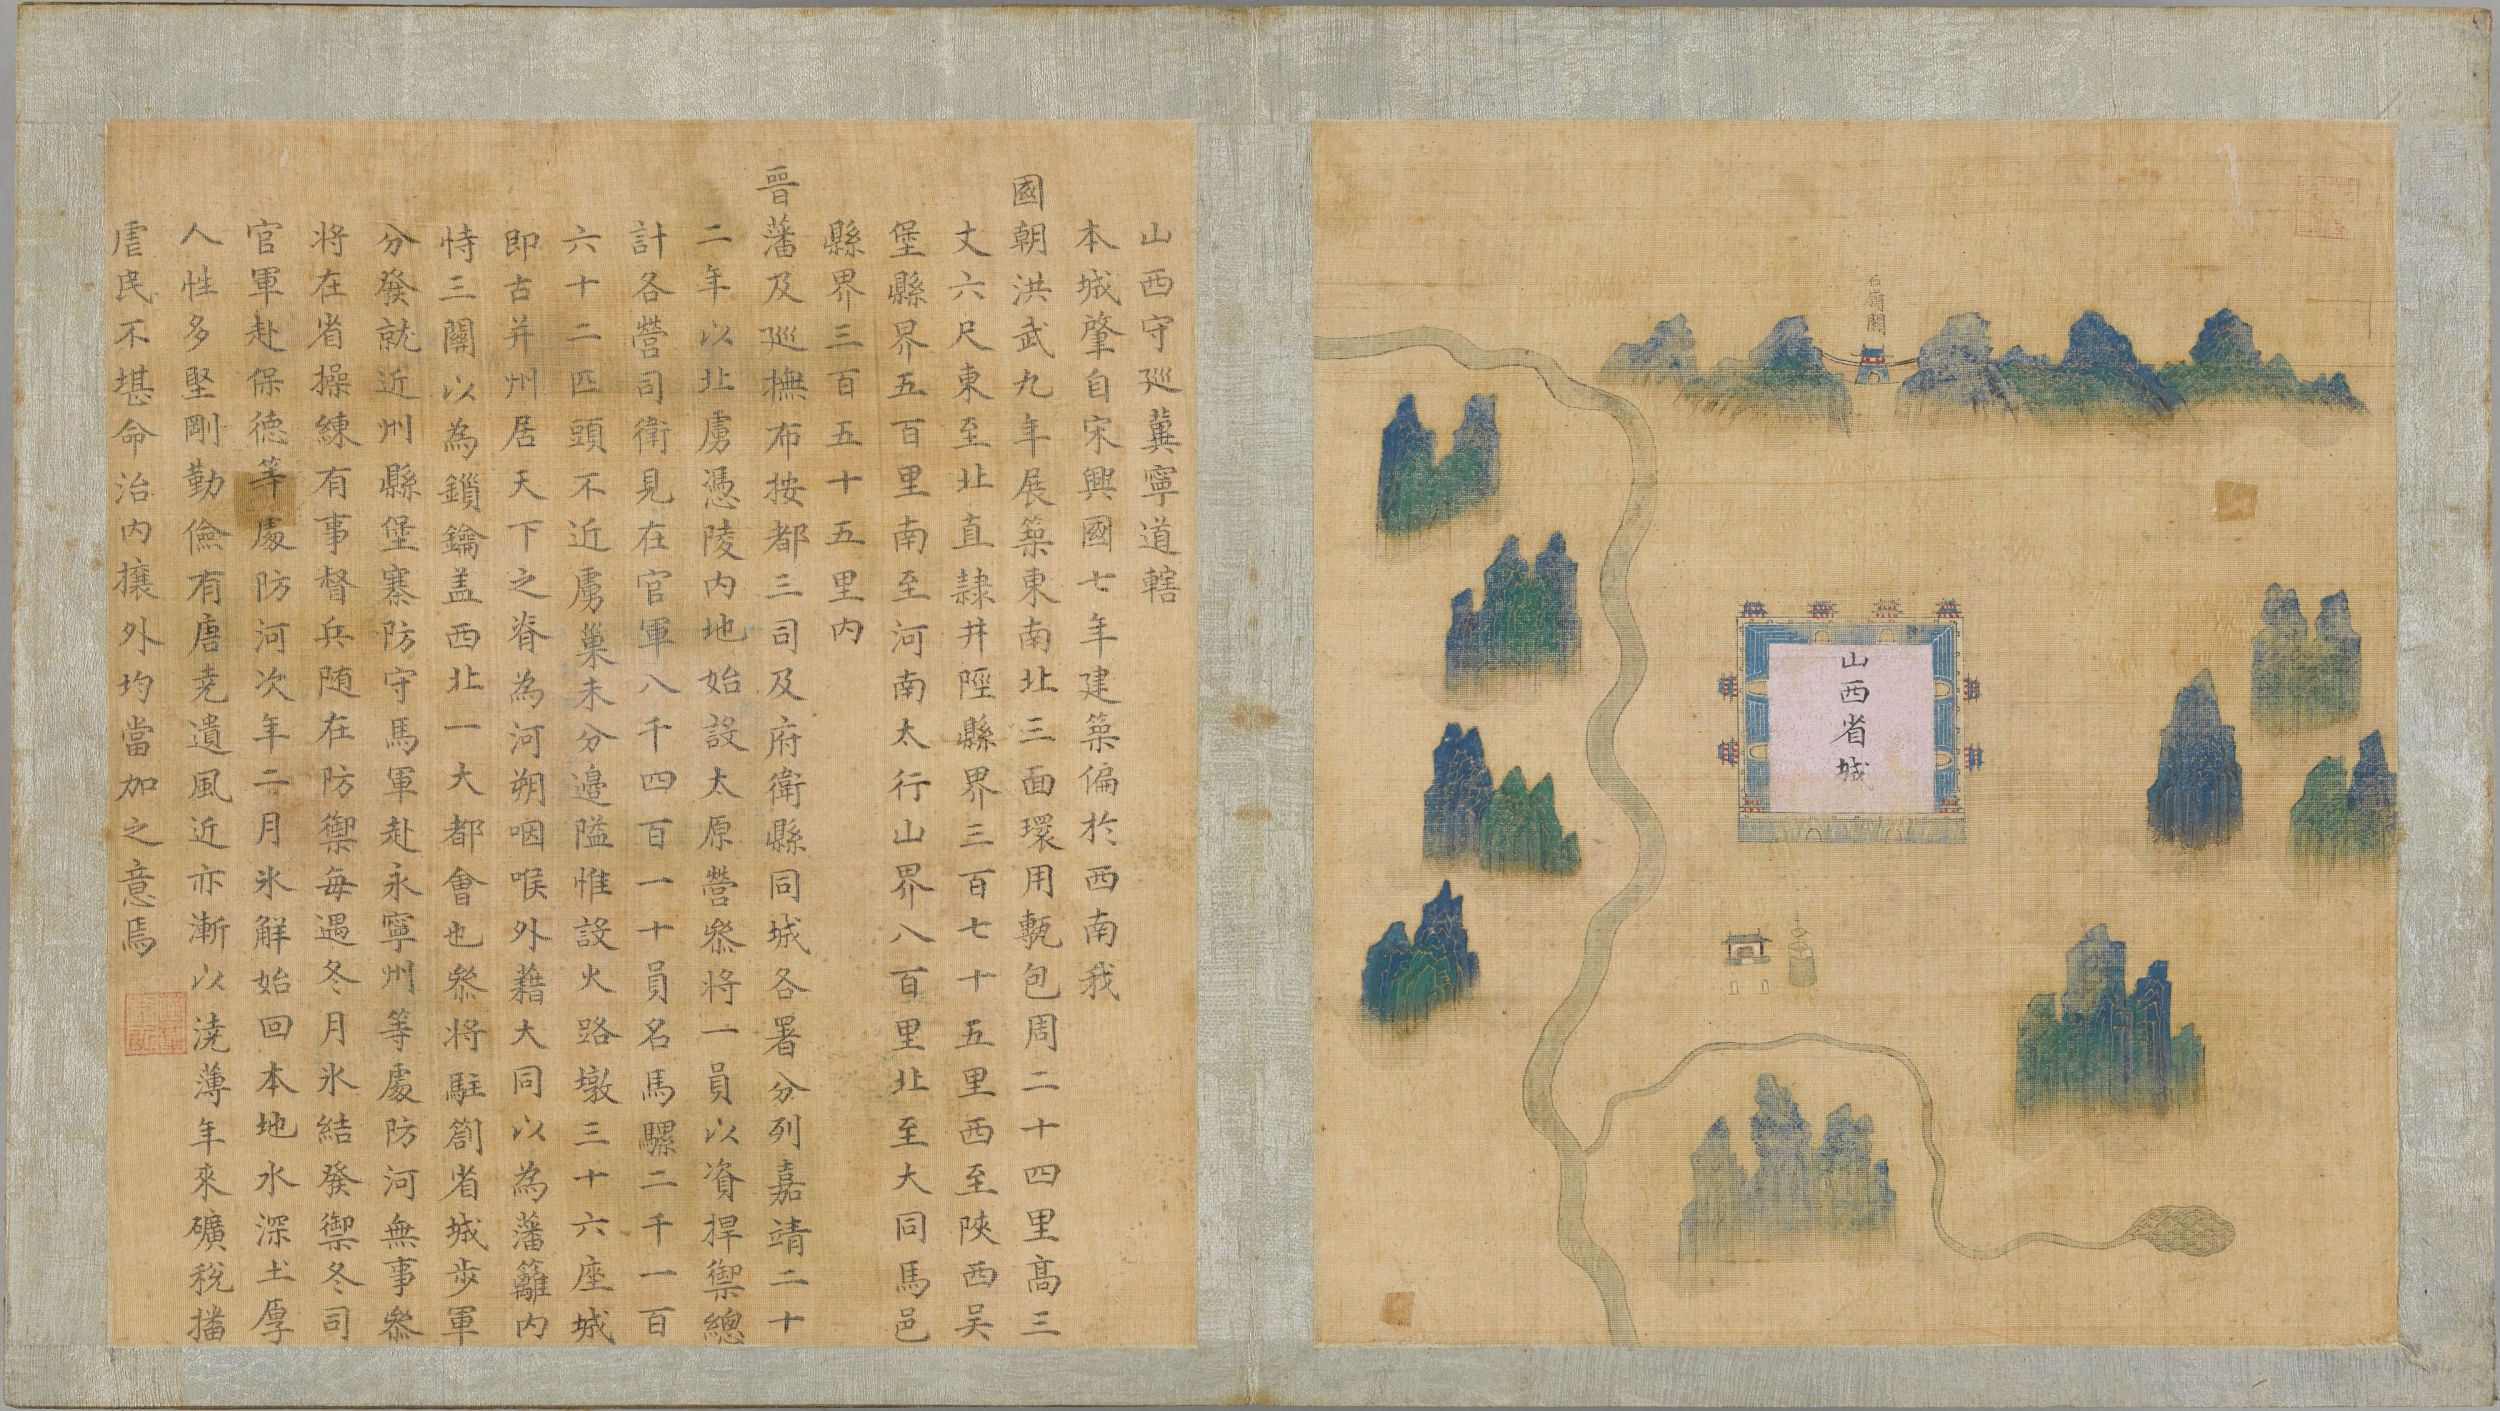 石嶺關
山西省城
山西守巡冀寧道轄
本城肇自宋興國七年建築偏於西南我
國朝洪武九年展築東南北三面環用甎包周二十四里高三
丈六尺東至北直隸井陘縣界三百七十五里西至陝西吳
堡縣界五百里南至河南太行山界八百里北至大同馬邑
縣界三百五十五里內
晉藩及巡撫布按都三司及府衛縣同城各署分列嘉靖二十
二年以北虜憑陵內地始設太原營叅將一員以資捍禦總
計各營司衛見在官軍八千四百一十員名馬騾二千一百
六十二匹頭不近虜巢未分邉隘惟設火路墩三十六座城
即古并州居天下之脊為河朔咽喉外藉大同以為藩籬內
恃三關以為鎖鑰盖西北一大都會也叅將駐劄省城步軍
分發就近州縣堡寨防守馬軍赴永寧州等處防河無事叅
將在省操練有事督兵隨在防禦每遇冬月氷結發禦冬司
官軍赴保德等處防河次年二月氷解始回本地水深土厚
人性多堅剛勤儉有唐堯遺風近亦漸以澆薄年來礦稅播
虐民不堪命治內攘外均當加之意焉